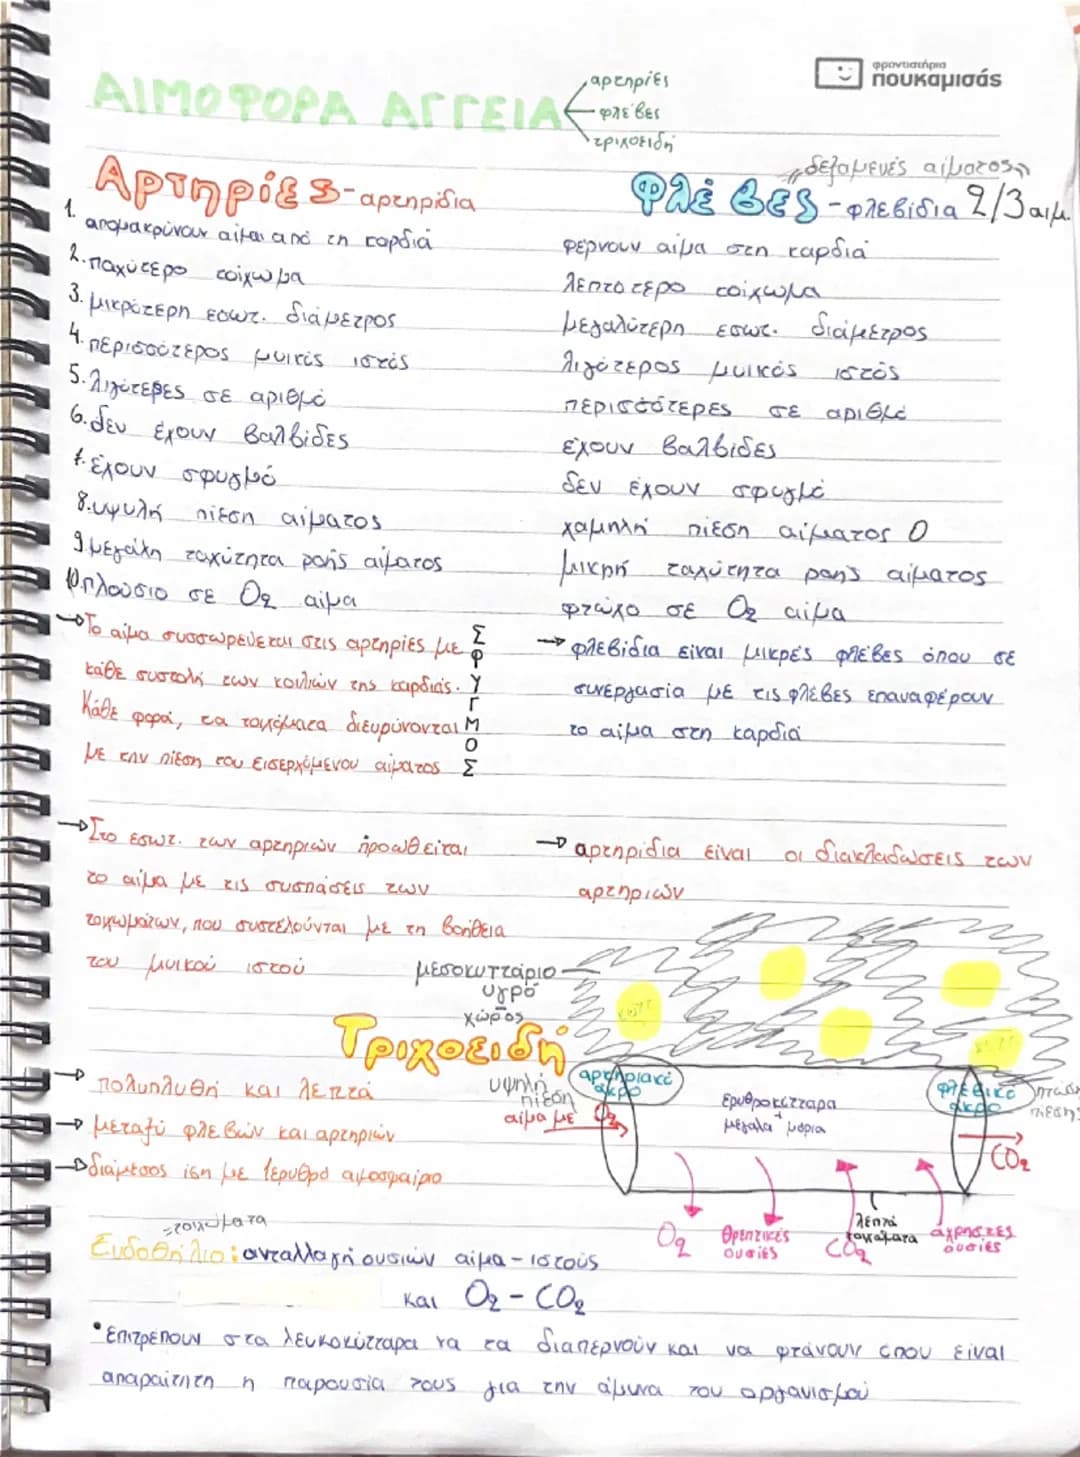 φροντιστήρια
πουκαμισάς
ΑΙΜΟΦΟΡΑ ΑΓΓΕΙΑ
αρτηρίες
φλέβες
τριχοειδή
Αρτηρίες - αρτηρίδια
1. απομακρύνουν αίμα από τη καρδιά
2. παχύτερο τοίχωμα
3. μικρότερη εσωτ. διάμετρος
4. περισσότερος μυικός ιστός
5. λιγότερες σε αριθμό
6. δεν έχουν βαλβίδες
7. έχουν σφυγμό
8. υψυλή πίεση αίματος
9. μεγάλη ταχύτητα ροής αίματος
10. πλούσιο σε O2 αίμα
"δεξαμενές αίματος"
Φλέβες - φλεβίδια 2/3 αιμ.
φέρνουν αίμα στη καρδιά
λεπτότερο τοίχωμα
μεγαλύτερη εσωτ. διάμετρος
λιγότερος μυικός ιστός
περισσότερες σε αριθμό
έχουν βαλβίδες
δεν έχουν σφυγμό
χαμηλή πίεση αίματος 0
μικρή ταχύτητα ροής αίματος
φτωχό σε O2 αίμα
→ Το αίμα συσσωρεύεται στις αρτηρίες με
κάθε συστολή των κοιλιών της καρδιάς.
Κάθε φορά, τα τοιχώματα διευρύνονται
με την πίεση του εισερχόμενου αίματος
ΣΦΥΓΜΟΣ
→ φλεβίδια είναι μικρές φλέβες όπου σε
συνεργασία με τις φλέβες επαναφέρουν
το αίμα στη καρδιά
→ Στο εσωτ. των αρτηριών προωθείται
το αίμα με τις συσπάσεις των
τοιχωμάτων, που συστελούνται με τη βοήθεια
του μυικού ιστού
→ αρτηρίδια είναι οι διακλαδώσεις των
αρτηριών
μεσοκυττάριο
υγρό
χώρος
Τριχοειδή
→ πολυπλυθή και λεπτά
→ μεταξύ φλεβών και αρτηριών
→ διάμεσος ίση με 1 ερυθρό αιμοσφαίριο
υψηλή
πίεση
αίμα με O2
αρτηριακό
άκρο
ερυθροκύτταρα
+
μεγάλα μόρια
φλεβικό
άκρο
πίεση
CO2
O2
θρεπτικές
ουσίες
CO2
λεπτά
τοιχώματα
άχρηστες
ουσίες
= τοιχώματα
Ενδοθήλιο: ανταλλαγή ουσιών αίμα - ιστούς
και O2 - CO2
• επιτρέπουν στα λευκοκύτταρα να τα διαπερνούν και να φτάνουν όπου είναι
απαραίτητη η παρουσία τους για την άμυνα του οργανισμού